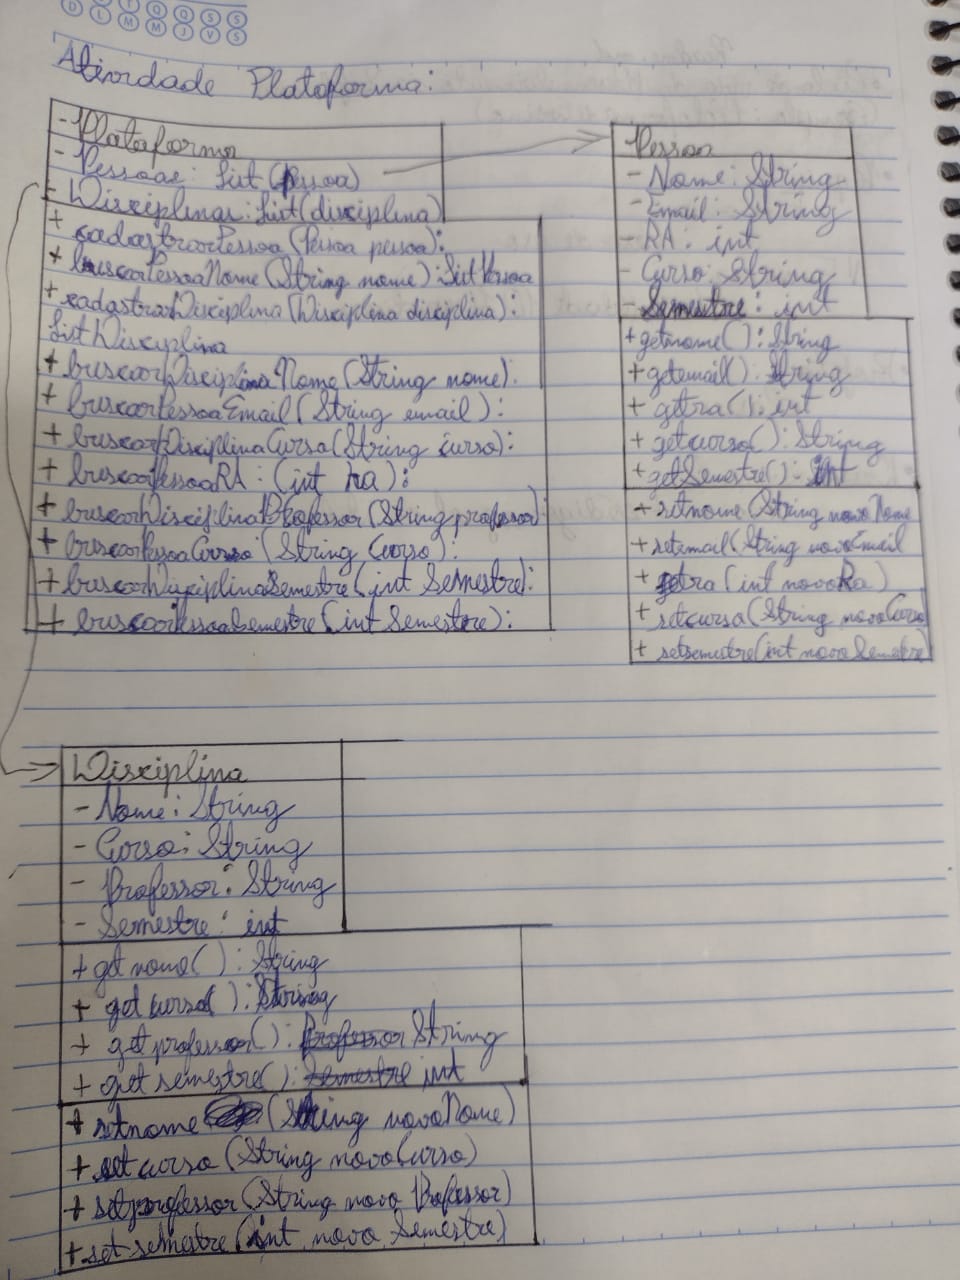 Atividade Plataforma:
- Plataforma
- Pessoas: List (Pessoa)
- Disciplinas: List (disciplina)
+ cadastrarPessoa (Pessoa pessoa):
+ buscarPessoaNome (String nome): ListPessoa
+ cadastrarDisciplina (Disciplina disciplina):
ListDisciplina
+ buscarDisciplinaNome (String nome):
+ buscarPessoaEmail (String email):
+ buscarDisciplinaCurso (String curso):
+ buscarPessoaRA: (int ra):
+ buscarDisciplinaProfessor (String professor):
+ buscarPessoaCurso (String Curso):
+ buscarDisciplinaSemestre (int Semestre):
+ buscarPessoaSemestre (int Semestre):
Pessoa
- Nome: String
- Email: String
- RA: int
- Curso: String
- Semestre: int
+ getnome(): String
+ getemail(): String
+ getra(): int
+ getcurso(): String
+ getSemestre(): int
+ setnome (String novoNome
+ setemail (String novoEmail
+ setra (int novoRa)
+ setcurso (String novoCurso
+ setsemestre (int novoSemestre)
Disciplina
- Nome: String
- Curso: String
- Professor: String
- Semestre: int
+ get nome( ): String
+ get curso( ): String
+ get professor(): Professor String
+ get semestre(): Semestre int
+ setnome (String novoNome)
+ set curso (String novoCurso)
+ setprofessor (String novo Professor)
+ set semestre (int novo Semestre)